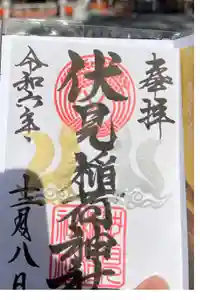 奉拝
伏見稲荷神社
令和六年
十二月八日